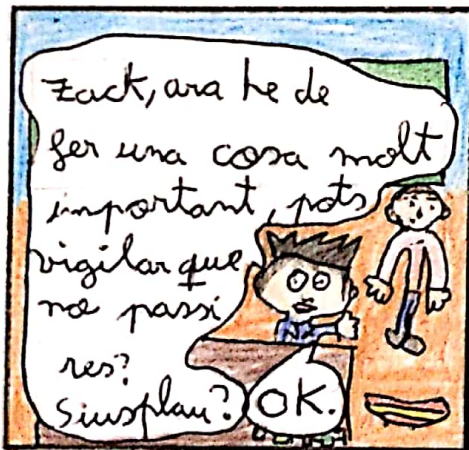 Zack, ara he de
fer una cosa molt
important, pots
vigilar que
no passi
res?
Siusplau?
OK.